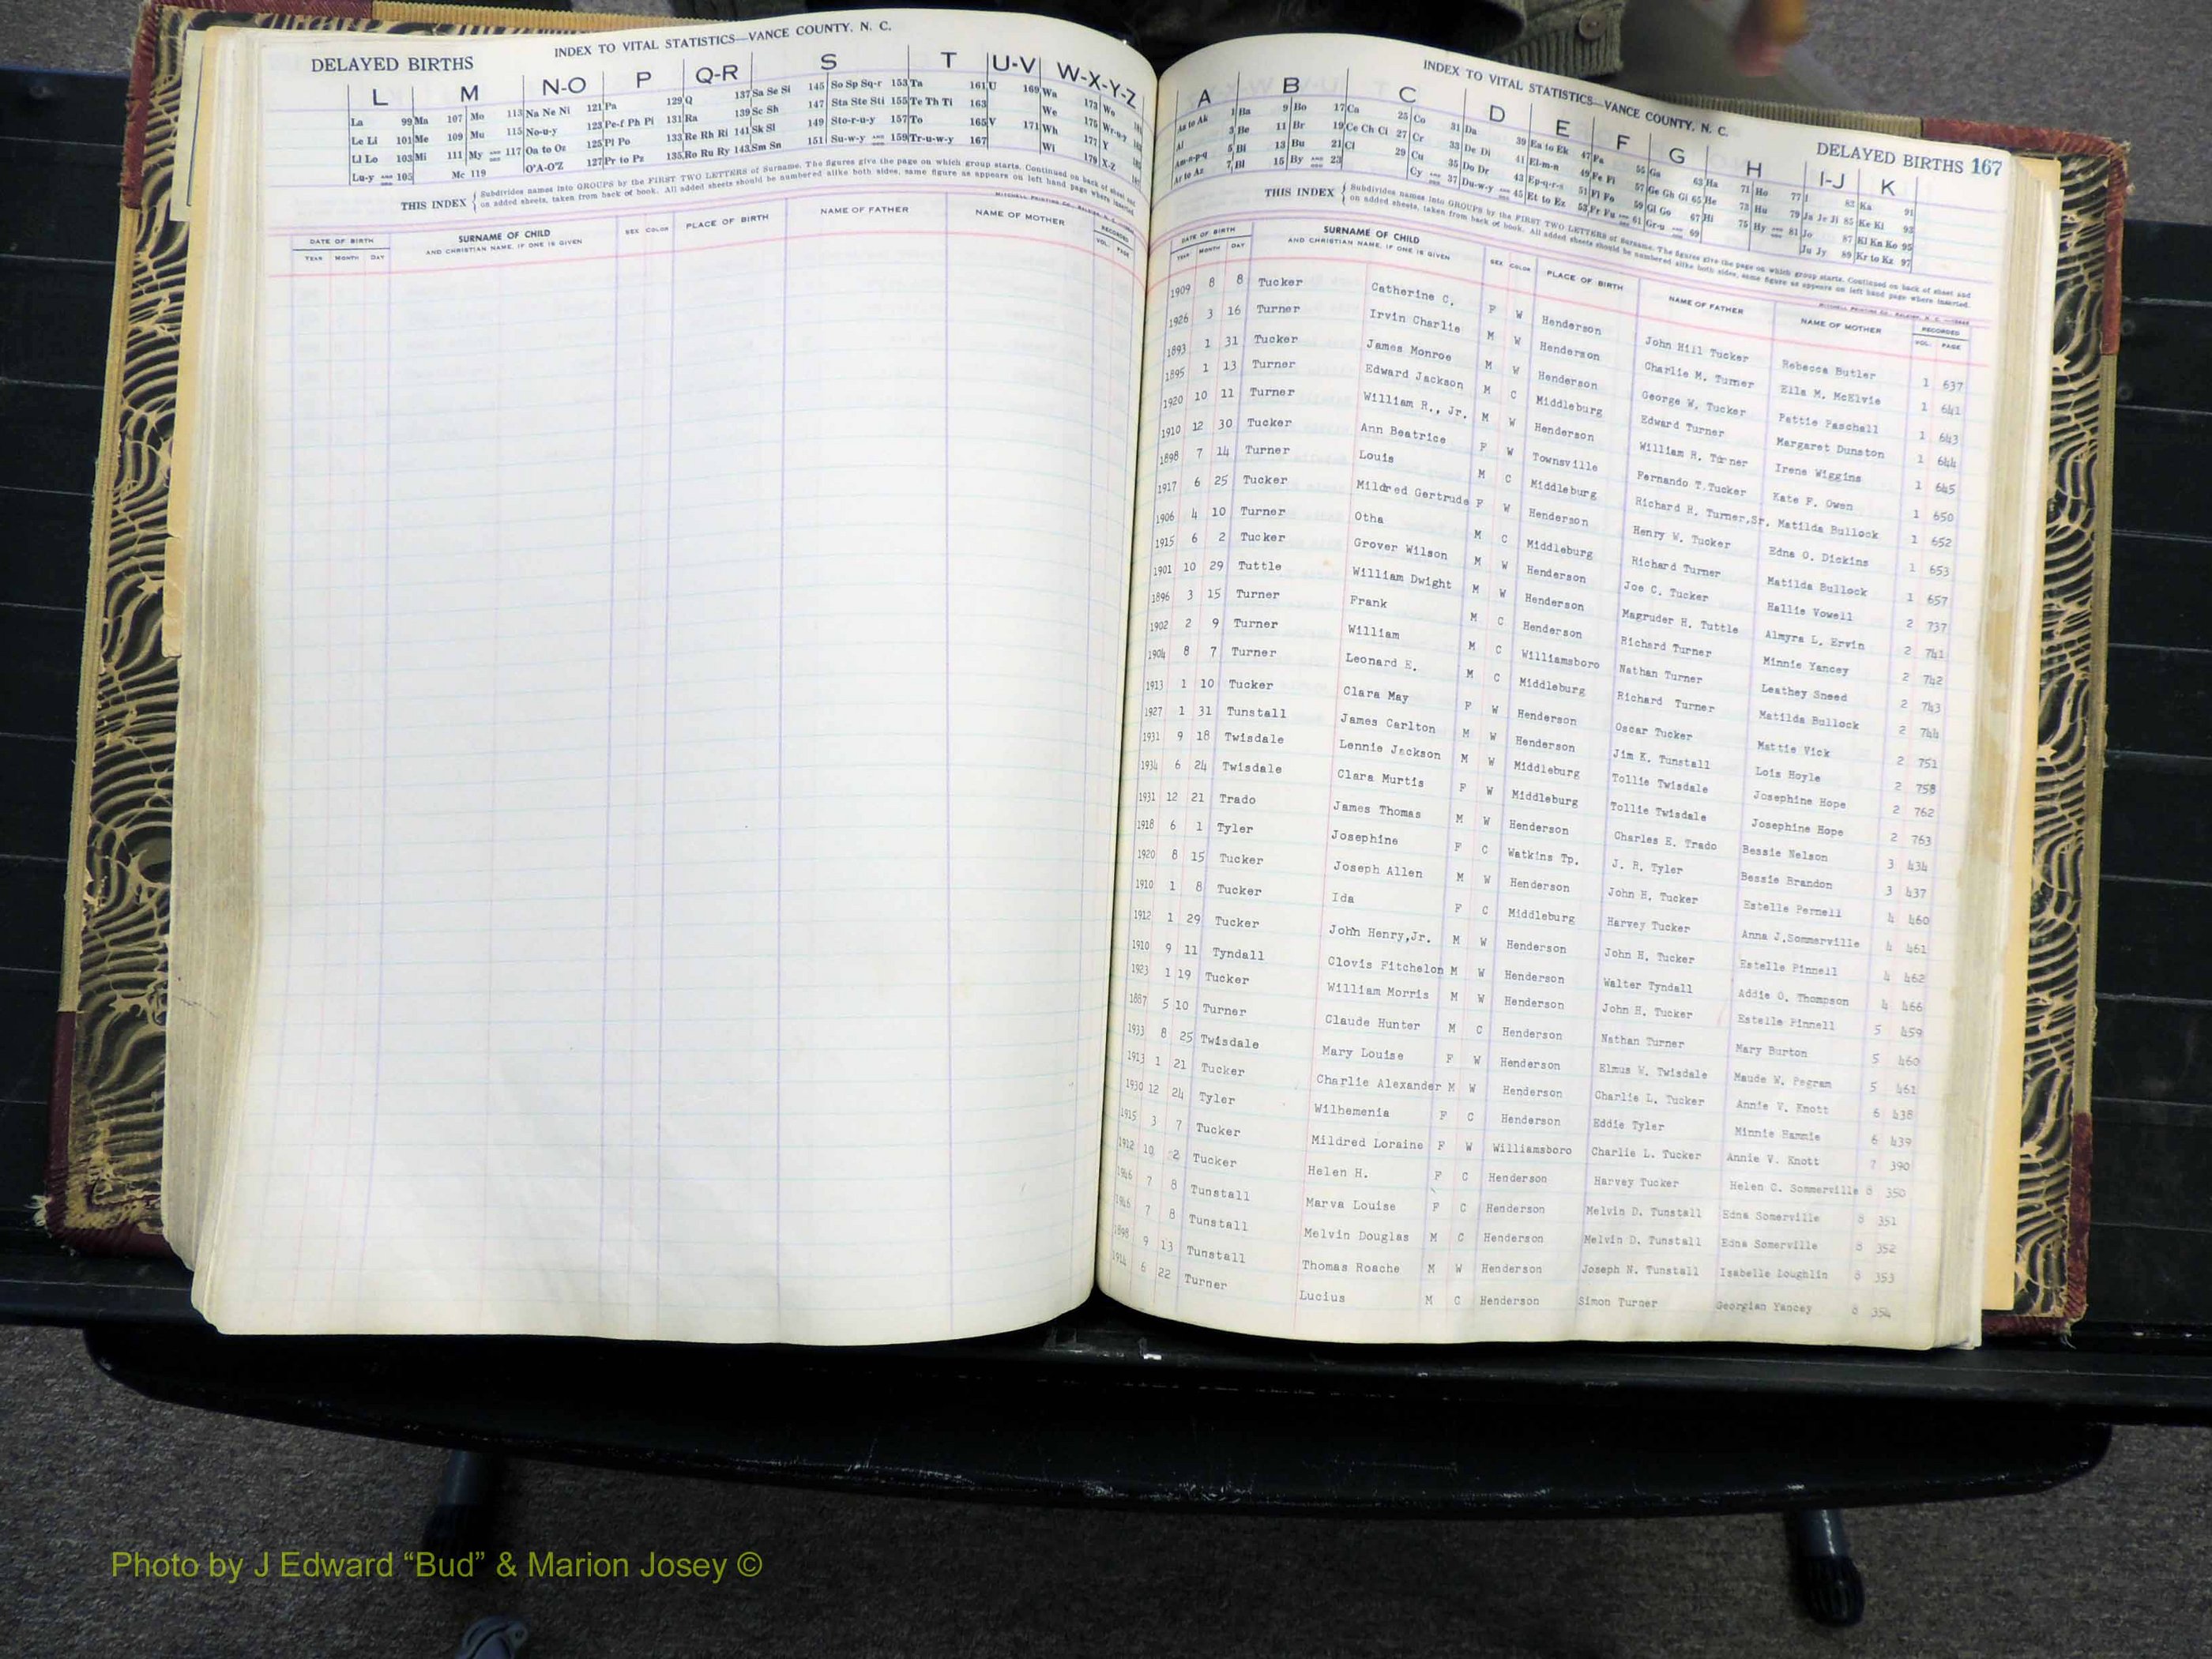 INDEX TO VITAL STATISTICS—VANCE COUNTY, N. C.
DELAYED BIRTHS
L M N-O P Q-R S T U-V W-X-Y-Z
La 99 Ma 107 Mo 113 Na Ne Ni 121 Pa 129 Q 137 Sa Se Si 145 So Sp Sq-r 153 Ta 161 U 169 Wa 173 Wo
Le Li 101 Me 109 Mu 115 No-u-y 123 Pe-f Ph Pi 131 Ra 139 Sc Sh 147 Sta Ste Sti 155 Te Th Ti 163 We 175 Wr-u-y
Ll Lo 103 Mi 111 My AND 117 Oa to Oz 125 Pl Po 133 Re Rh Ri 141 Sk Sl 149 Sto-r-u-y 157 To 165 V 171 Wh 177 Y
Lu-y AND 105 Mc 119 O'A-O'Z 127 Pr to Pz 135 Ro Ru Ry 143 Sm Sn 151 Su-w-y AND 159 Tr-u-w-y 167 Wi 179 X-Z
THIS INDEX { Subdivides names into GROUPS by the FIRST TWO LETTERS of Surname. The figures give the page on which group starts. Continued on back of sheet and
on added sheets, taken from back of book. All added sheets should be numbered alike both sides, same figure as appears on left hand page where inserted.
DATE OF BIRTH SURNAME OF CHILD SEX COLOR PLACE OF BIRTH NAME OF FATHER NAME OF MOTHER RECORDED
YEAR MONTH DAY AND CHRISTIAN NAME, IF ONE IS GIVEN VOL. PAGE
INDEX TO VITAL STATISTICS—VANCE COUNTY, N. C.
DELAYED BIRTHS 167
A B C D E F G H I-J K
Aa to Ak 1 Ba 9 Bo 17 Ca 25 Co 31 Da 39 Ea to Ek 47 Fa 55 Ga 63 Ha 71 Ho 77 I 83 Ka 91
Al 3 Be 11 Br 19 Ce Ch Ci 27 Cr 33 De Di 41 El-m-n 49 Fe Fi 57 Ge Gh Gi 65 He 73 Hu 79 Ja Je Ji 85 Ke Ki 93
Am-n-p-q 5 Bi 13 Bu 21 Cl 29 Cu 35 Do Dr 43 Ep-q-r-s 51 Fl Fo 59 Gl Go 67 Hi 75 Hy AND 81 Jo 87 Kl Kn Ko 95
Ar to Az 7 Bl 15 By AND 23 Cy AND 37 Du-w-y AND 45 Et to Ez 53 Fr Fu AND 61 Gr-u AND 69 Ju Jy 89 Kr to Kz 97
THIS INDEX { Subdivides names into GROUPS by the FIRST TWO LETTERS of Surname. The figures give the page on which group starts. Continued on back of sheet and
on added sheets, taken from back of book. All added sheets should be numbered alike both sides, same figure as appears on left hand page where inserted.
DATE OF BIRTH SURNAME OF CHILD SEX COLOR PLACE OF BIRTH NAME OF FATHER NAME OF MOTHER RECORDED
YEAR MONTH DAY AND CHRISTIAN NAME, IF ONE IS GIVEN VOL. PAGE
1909 8 8 Tucker Catherine C. F W Henderson John Hill Tucker Rebecca Butler 1 637
1926 3 16 Turner Irvin Charlie M W Henderson Charlie M. Turner Ella M. McElvie 1 641
1893 1 31 Tucker James Monroe M W Henderson George W. Tucker Pattie Paschall 1 643
1895 1 13 Turner Edward Jackson M C Middleburg Edward Turner Margaret Dunston 1 644
1920 10 11 Turner William R., Jr. M W Henderson William R. Turner Irene Wiggins 1 645
1910 12 30 Tucker Ann Beatrice F W Townsville Fernando T.Tucker Kate F. Owen 1 650
1898 7 14 Turner Louis M C Middleburg Richard H. Turner,Sr. Matilda Bullock 1 652
1917 6 25 Tucker Mildred Gertrude F W Henderson Henry W. Tucker Edna O. Dickins 1 653
1906 4 10 Turner Otha M C Middleburg Richard Turner Matilda Bullock 1 657
1915 6 2 Tucker Grover Wilson M W Henderson Joe C. Tucker Hallie Vowell 2 737
1901 10 29 Tuttle William Dwight M W Henderson Magruder H. Tuttle Almyra L. Ervin 2 741
1896 3 15 Turner Frank M C Henderson Richard Turner Minnie Yancey 2 742
1902 2 9 Turner William M C Williamsboro Nathan Turner Leathey Sneed 2 743
1904 8 7 Turner Leonard E. M C Middleburg Richard Turner Matilda Bullock 2 744
1913 1 10 Tucker Clara May F W Henderson Oscar Tucker Mattie Vick 2 751
1927 1 31 Tunstall James Carlton M W Henderson Jim K. Tunstall Lois Hoyle 2 758
1931 9 18 Twisdale Lennie Jackson M W Middleburg Tollie Twisdale Josephine Hope 2 762
1934 6 24 Twisdale Clara Murtis F W Middleburg Tollie Twisdale Josephine Hope 2 763
1931 12 21 Trado James Thomas M W Henderson Charles E. Trado Bessie Nelson 3 434
1918 6 1 Tyler Josephine F C Watkins Tp. J. R. Tyler Bessie Brandon 3 437
1920 8 15 Tucker Joseph Allen M W Henderson John H. Tucker Estelle Pernell 4 460
1910 1 8 Tucker Ida F C Middleburg Harvey Tucker Anna J.Sommerville 4 461
1912 1 29 Tucker John Henry,Jr. M W Henderson John H. Tucker Estelle Pinnell 4 462
1910 9 11 Tyndall Clovis Fitchelon M W Henderson Walter Tyndall Addie O. Thompson 4 466
1923 1 19 Tucker William Morris M W Henderson John H. Tucker Estelle Pinnell 5 459
1887 5 10 Turner Claude Hunter M C Henderson Nathan Turner Mary Burton 5 460
1933 8 25 Twisdale Mary Louise F W Henderson Elmus W. Twisdale Maude W. Pegram 5 461
1913 1 21 Tucker Charlie Alexander M W Henderson Charlie L. Tucker Annie V. Knott 6 438
1930 12 24 Tyler Wilhemenia F C Henderson Eddie Tyler Minnie Hammie 6 439
1915 3 7 Tucker Mildred Loraine F W Williamsboro Charlie L. Tucker Annie V. Knott 7 390
1912 10 2 Tucker Helen H. F C Henderson Harvey Tucker Helen C. Sommerville 8 350
1946 7 8 Tunstall Marva Louise F C Henderson Melvin D. Tunstall Edna Somerville 8 351
1946 7 8 Tunstall Melvin Douglas M C Henderson Melvin D. Tunstall Edna Somerville 8 352
1898 9 13 Tunstall Thomas Roache M W Henderson Joseph N. Tunstall Isabelle Loughlin 8 353
1914 6 22 Turner Lucius M C Henderson Simon Turner Georgian Yancey 8 354
Photo by J Edward “Bud” & Marion Josey ©